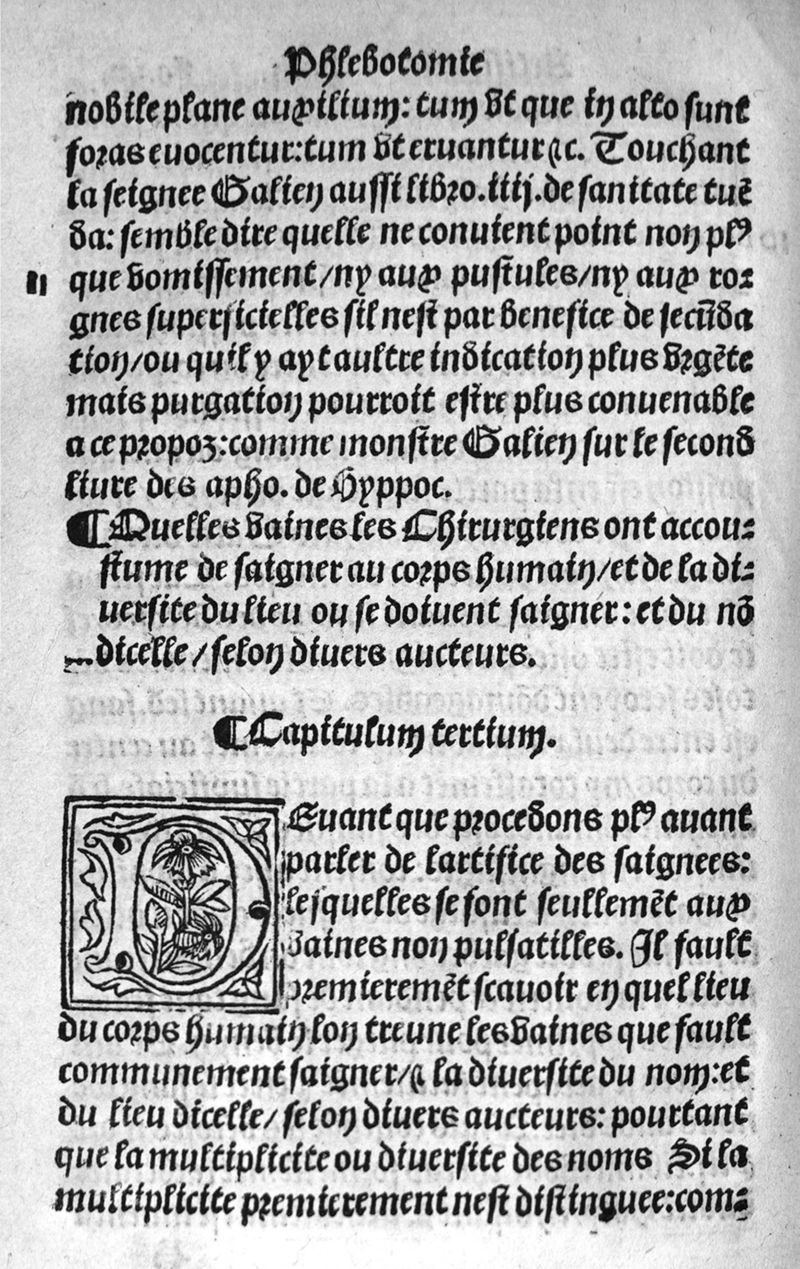 Phlebotomie
nobile plane auxilium: tum vt que in alto sunt
foras euocentur: tum vt eruantur ⁊c. Touchant
la seignee Galien aussi libro .iiij. de sanitate tuē
da: semble dire quelle ne conuient point non plꝰ
que vomissement / ny aux pustules / ny aux ro⸗
gnes superficielles sil nest par benefice de secūda
tion / ou quil y ayt aultre indication plus vrgēte
mais purgation pourroit estre plus conuenable
a ce propoz: comme monstre Galien sur le second
liure des apho. de Hyppoc.
¶ Quelles vaines les Chirurgiens ont accou⸗
stume de saigner au corps humain / et de la di⸗
uersite du lieu ou se doiuent saigner: et du nō
dicelle / selon diuers aucteurs.
¶ Capitulum tertium.
DEuant que procedons plꝰ auant
parler de lartifice des saignees:
lesquelles se font seullemēt aux
vaines non pulsatilles. Il fault
premieremēt scauoir en quel lieu
du corps humain lon treuue les vaines que fault
communement saigner / ⁊ la diuersite du nom: et
du lieu dicelle / selon diuers aucteurs: pourtant
que la multiplicite ou diuersite des noms Si la
multiplicite premierement nest distinguee: com⸗